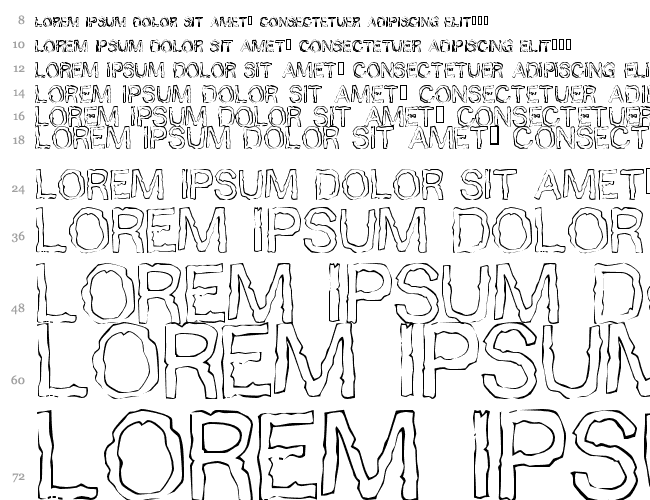 8 LOREM IPSUM DOLOR SIT AMET▯ CONSECTETUER ADIPISCING ELIT▯▯▯
10 LOREM IPSUM DOLOR SIT AMET▯ CONSECTETUER ADIPISCING ELIT▯▯▯
12 LOREM IPSUM DOLOR SIT AMET▯ CONSECTETUER ADIPISCING ELI
14 LOREM IPSUM DOLOR SIT AMET▯ CONSECTETUER ADI
16 LOREM IPSUM DOLOR SIT AMET▯ CONSECTETUER
18 LOREM IPSUM DOLOR SIT AMET▯ CONSECT
24 LOREM IPSUM DOLOR SIT AMET
36 LOREM IPSUM DOLOR
48 LOREM IPSUM DO
60 LOREM IPSUM
72 LOREM IPS